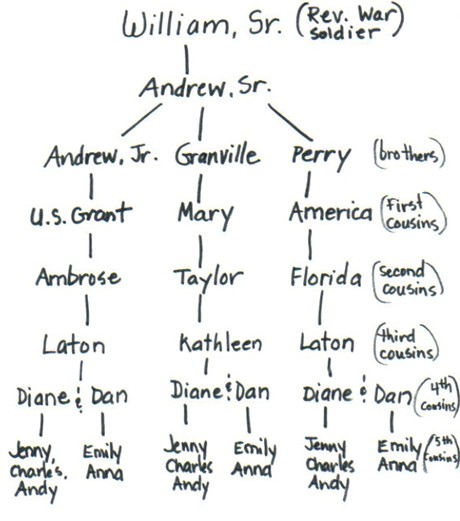 William, Sr. (Rev. War
soldier)
Andrew, Sr.
Andrew, Jr. Granville Perry (brothers)
U.S. Grant Mary America (First
cousins)
Ambrose Taylor Florida (second
cousins)
Laton Kathleen Laton (third
cousins)
Diane & Dan Diane & Dan Diane & Dan (4th
cousins)
Jenny, Emily Jenny Emily Jenny Emily (5th
Charles, Anna Charles Anna Charles Anna cousins)
Andy Andy Andy